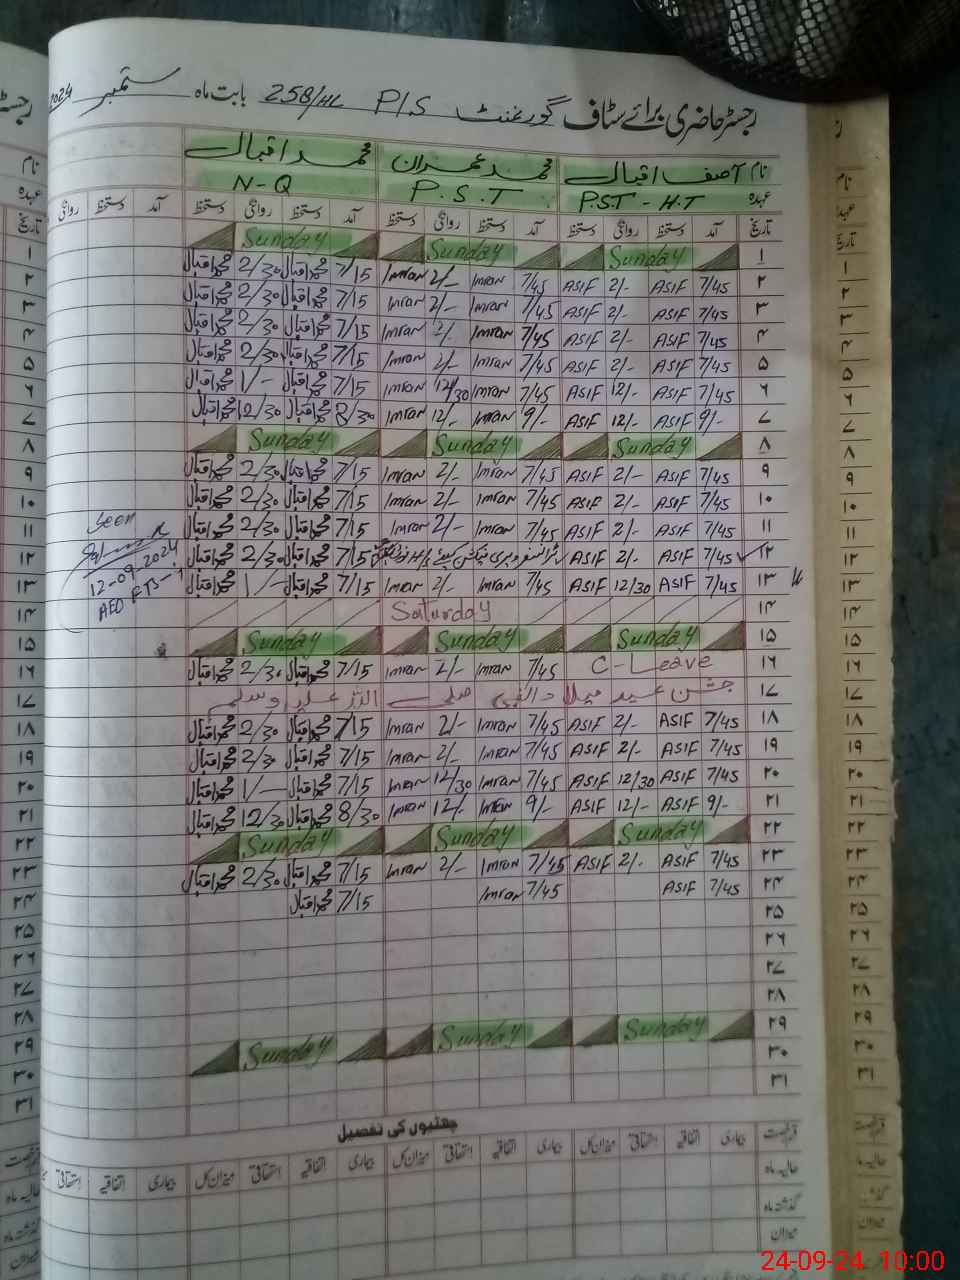 رجسٹر حاضری برائے سٹاف گورنمنٹ P/S 258/HL بابت ماہ ستمبر 2024
نام آصف اقبال محمد عمران محمد اقبال
عہدہ PST - H.T P.S.T N-Q
تاریخ آمد دستخط روانگی دستخط آمد دستخط روانگی دستخط آمد دستخط روانگی دستخط آمد دستخط روانگی
۱ Sunday Sunday Sunday
۲ 7/45 ASIF 2/- ASIF 7/45 Imran 2/- Imran 7/15 محمد اقبال 2/30 محمد اقبال
۳ 7/45 ASIF 2/- ASIF 7/45 Imran 2/- Imran 7/15 محمد اقبال 2/30 محمد اقبال
۴ 7/45 ASIF 2/- ASIF 7/45 Imran 2/- Imran 7/15 محمد اقبال 2/30 محمد اقبال
۵ 7/45 ASIF 2/- ASIF 7/45 Imran 2/- Imran 7/15 محمد اقبال 2/30 محمد اقبال
۶ 7/45 ASIF 12/- ASIF 7/45 Imran 12/30 Imran 7/15 محمد اقبال 1/- محمد اقبال
۷ 9/- ASIF 12/- ASIF 9/- Imran 12/- Imran 8/30 محمد اقبال 12/30 محمد اقبال
۸ Sunday Sunday Sunday
۹ 7/45 ASIF 2/- ASIF 7/45 Imran 2/- Imran 7/15 محمد اقبال 2/30 محمد اقبال
۱۰ 7/45 ASIF 2/- ASIF 7/45 Imran 2/- Imran 7/15 محمد اقبال 2/30 محمد اقبال
۱۱ 7/45 ASIF 2/- ASIF 7/45 Imran 2/- Imran 7/15 محمد اقبال 2/30 محمد اقبال Seen
۱۲ 7/45 ASIF 2/- ASIF 7/15 محمد اقبال 2/30 محمد اقبال 12-09-2024
۱۳ 7/45 ASIF 12/30 ASIF 7/45 Imran 2/- Imran 7/15 محمد اقبال 1/- محمد اقبال AEO
۱۴ Saturday
۱۵ Sunday Sunday Sunday
۱۶ C-Leave 7/45 Imran 2/- Imran 7/15 محمد اقبال 2/30 محمد اقبال
۱۷ جشن عید میلاد النبی صلی اللہ علیہ وسلم
۱۸ 7/45 ASIF 2/- ASIF 7/45 Imran 2/- Imran 7/15 محمد اقبال 2/30 محمد اقبال
۱۹ 7/45 ASIF 2/- ASIF 7/45 Imran 2/- Imran 7/15 محمد اقبال 2/30 محمد اقبال
۲۰ 7/45 ASIF 12/30 ASIF 7/45 Imran 12/30 Imran 7/15 محمد اقبال 1/- محمد اقبال
۲۱ 9/- ASIF 12/- ASIF 9/- Imran 12/- Imran 8/30 محمد اقبال 12/30 محمد اقبال
۲۲ Sunday Sunday Sunday
۲۳ 7/45 ASIF 2/- ASIF 7/45 Imran 2/- Imran 7/15 محمد اقبال 2/30 محمد اقبال
۲۴ 7/45 ASIF 7/45 Imran 7/15 محمد اقبال
۲۵
۲۶
۲۷
۲۸
۲۹ Sunday Sunday Sunday
۳۰
۳۱
چھٹیوں کی تفصیل
قسم رخصت بیماری اتفاقیہ استحقاقی میزان کل بیماری اتفاقیہ استحقاقی میزان کل بیماری اتفاقیہ استحقاقی میزان کل بیماری اتفاقیہ استحقاقی
حالیہ ماہ
گذشتہ ماہ
میزان
24-09-24 10:00